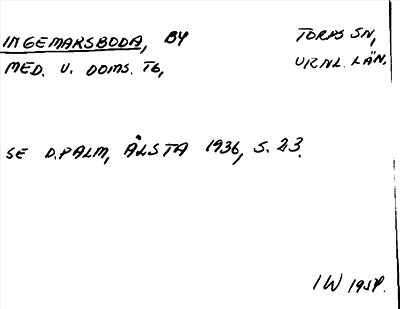 INGEMARSBODA, BY TORPS SN,
MED. U. DOMS. TB, VRNL. LÄN.
SE D.PALM, ÅLSTA 1936, S. 23.
IW